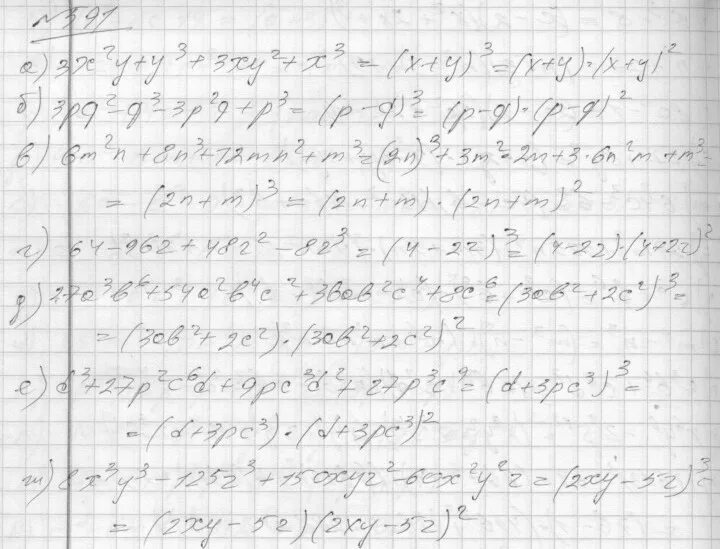 №591
а) 3x²y+y³+3xy²+x³ = (x+y)³ = (x+y)·(x+y)²
б) 3pq²-q³-3p²q+p³ = (p-q)³ = (p-q)·(p-q)²
в) 6m²n+8n³+12mn²+m³ = (2n)³+3m²·2n+3·6n²m+m³ =
= (2n+m)³ = (2n+m)·(2n+m)²
г) 64-96z+48z²-8z³ = (4-2z)³ = (4-2z)·(4+2z)²
д) 27a³b⁶+54a²b⁴c²+36ab²c⁴+8c⁶ = (3ab²+2c²)³ =
= (3ab²+2c²)·(3ab²+2c²)²
е) d³+27p²c⁶d+9pc³d²+27p³c⁹ = (d+3pc³)³ =
= (d+3pc³)·(d+3pc³)²
ж) 8x³y³-125z³+150xyz²-60x²y²z = (2xy-5z)³ =
= (2xy-5z)(2xy-5z)²